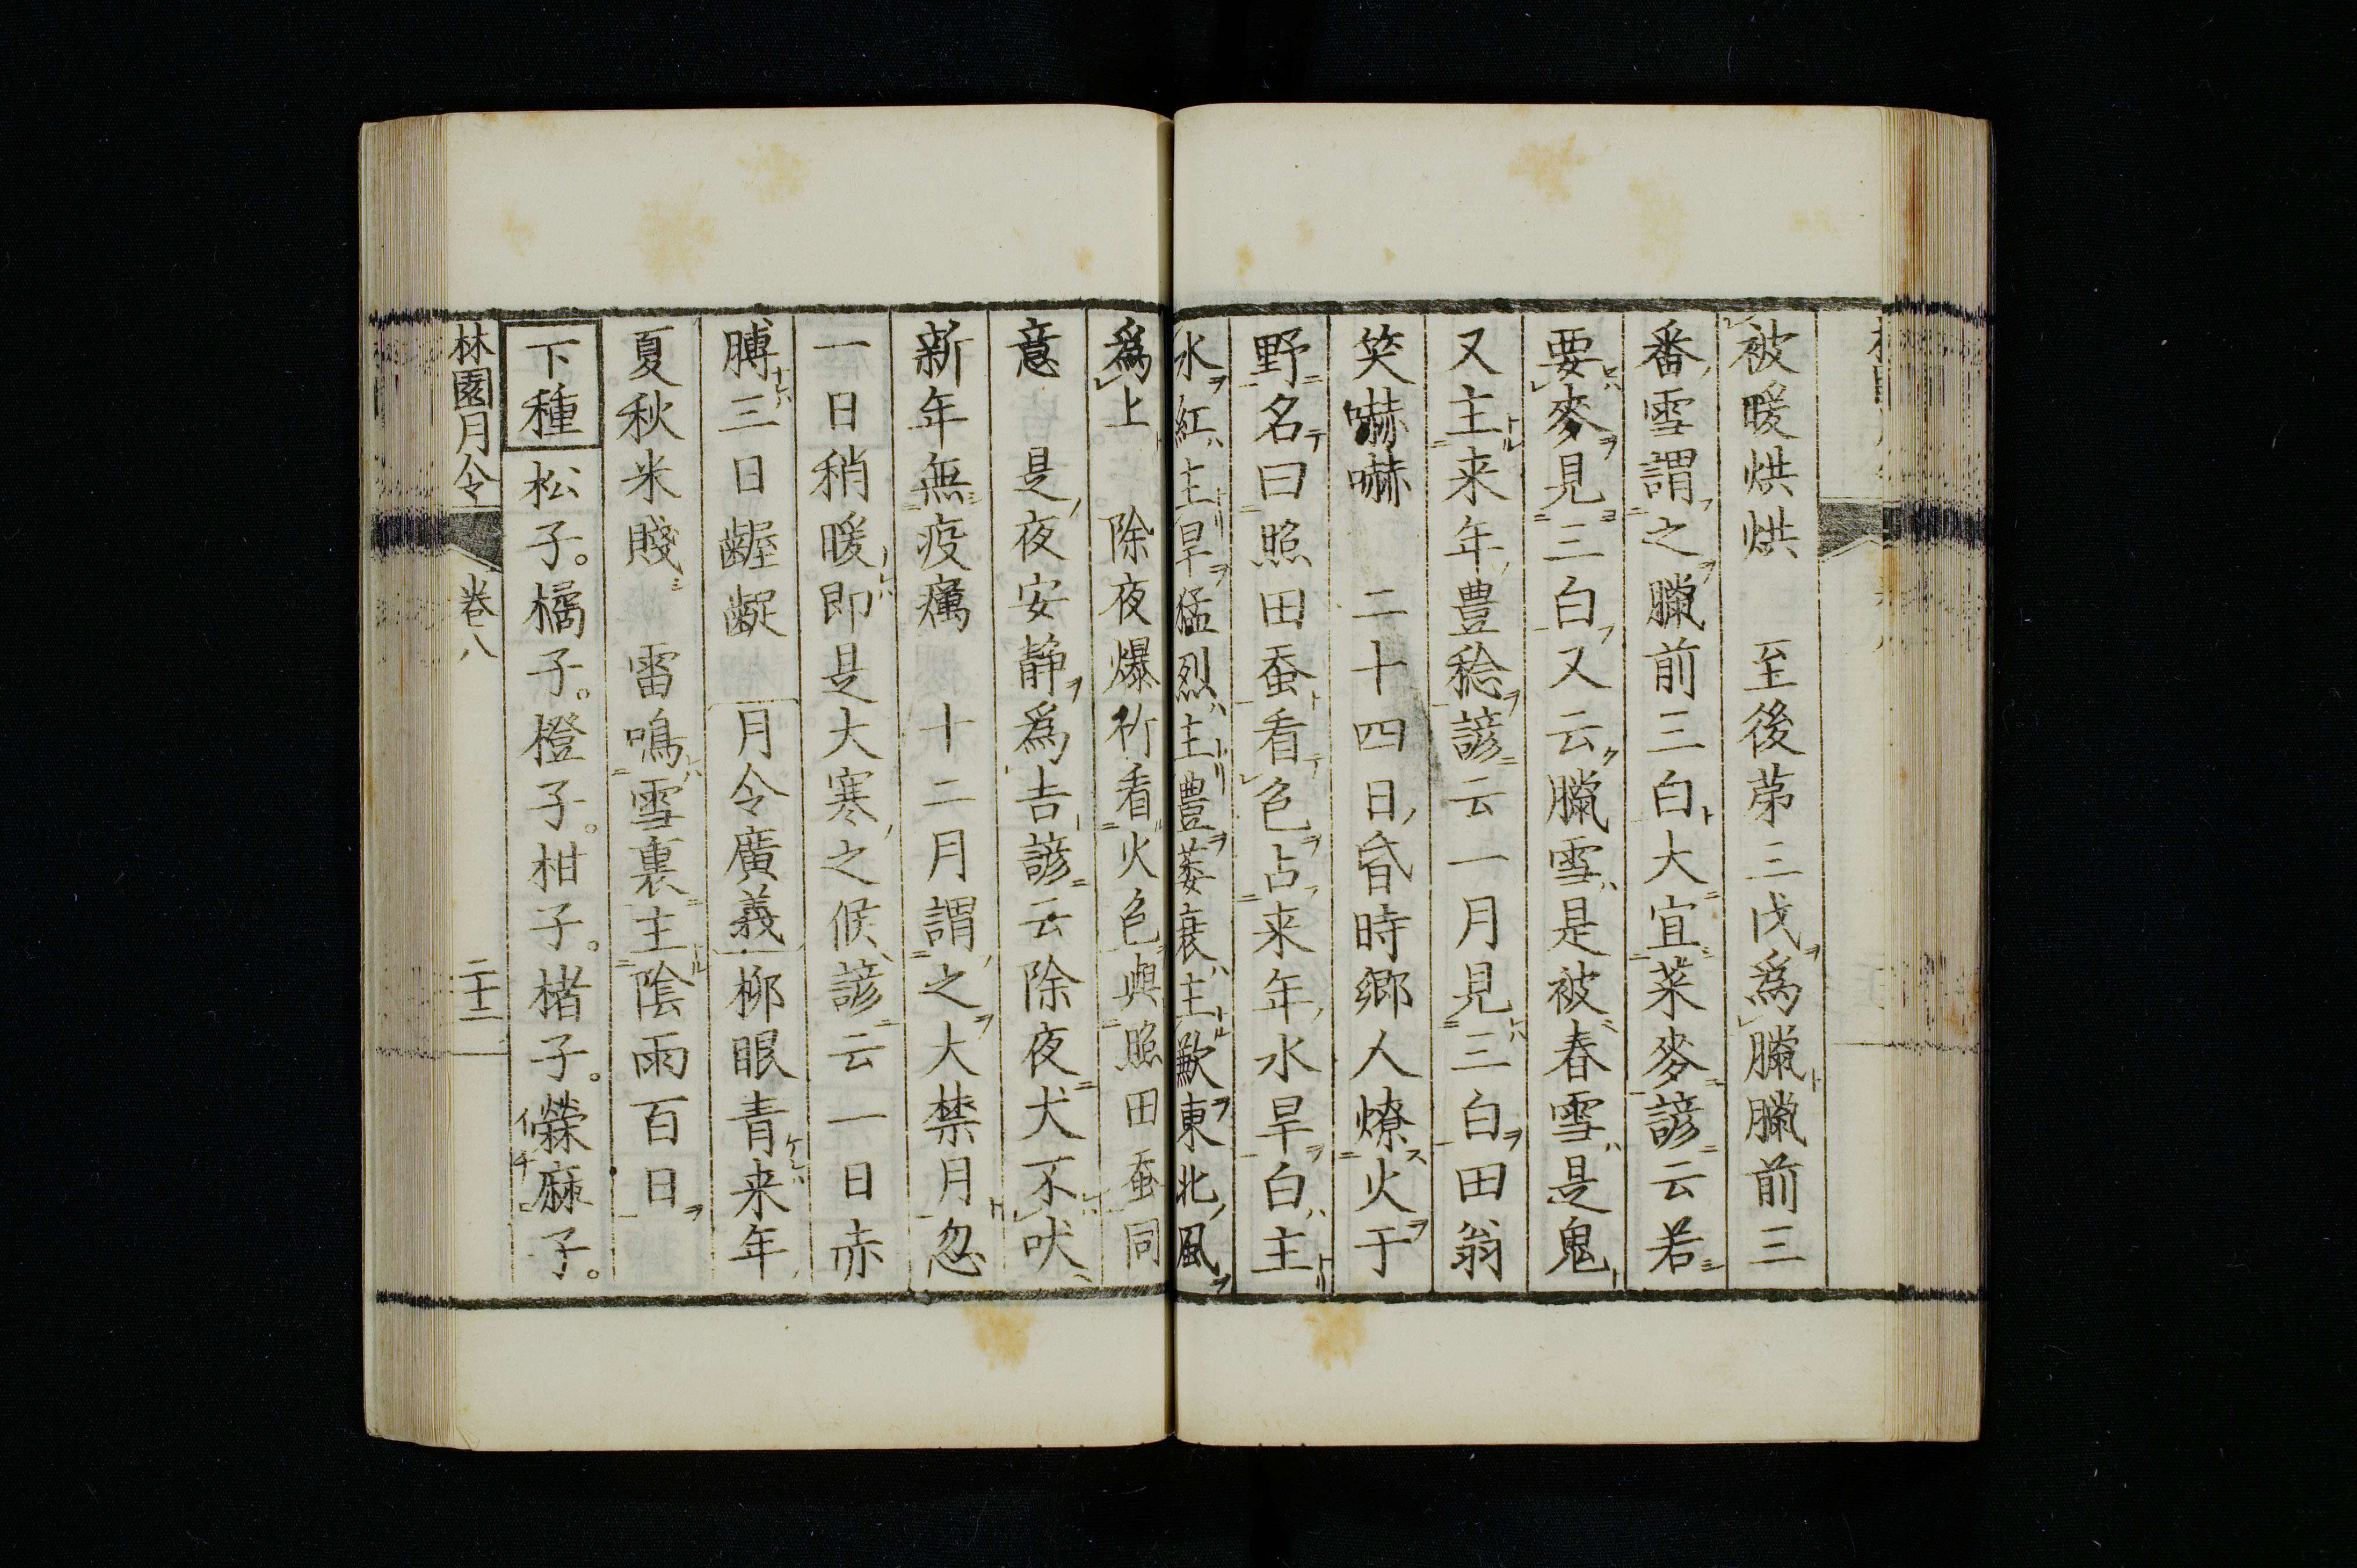 被暖烘烘　至後苐三戊爲臘臘前三
番雪謂之臘前三白大宜菜麥諺云若
要麥見三白又云臘雪是被春雪是鬼
又主来年豊稔諺云一月見三白田翁
笑嚇嚇　二十四日昏時郷人燎火于
野名曰照田蚕看色占来年水旱白主
水紅主旱猛烈主豊萎衰主歉東北風
爲上　除夜爆竹看火色與照田蚕同
意　是夜安静爲吉諺云除夜犬不吠
新年無疫癘　十二月謂之大禁月忽
一日稍暖即是大寒之候諺云一日赤
膊三日齷齪　月令廣義柳眼青来年
夏秋米賤　雷鳴雪裏主陰雨百日
下種松子。橘子。橙子。柑子。楮子。䔛麻子。
林園月令　巻八　二十二